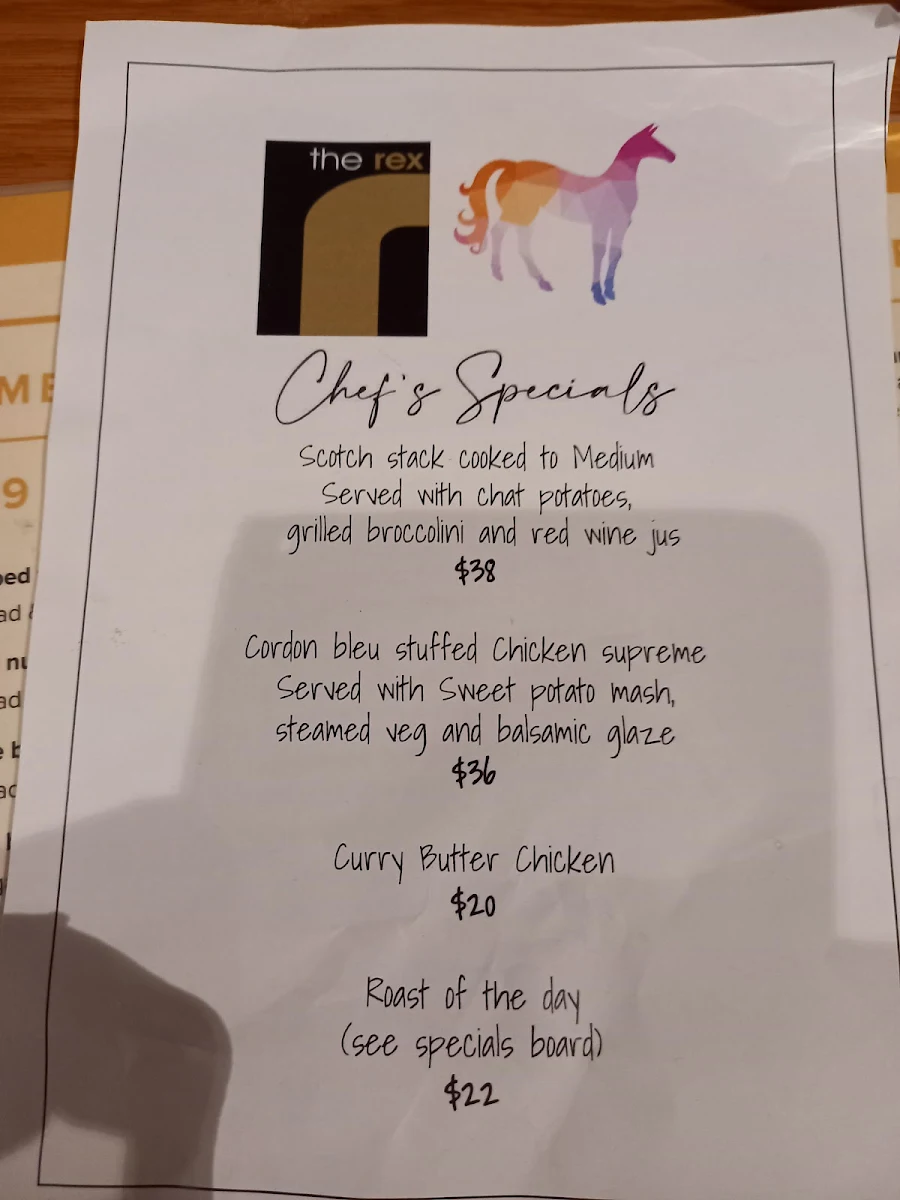 the rex
Chef's Specials
Scotch stack cooked to Medium
Served with chat potatoes,
grilled broccolini and red wine jus
$38
Cordon bleu stuffed Chicken supreme
Served with Sweet potato mash,
steamed veg and balsamic glaze
$36
Curry Butter Chicken
$20
Roast of the day
(see specials board)
$22
ME
9